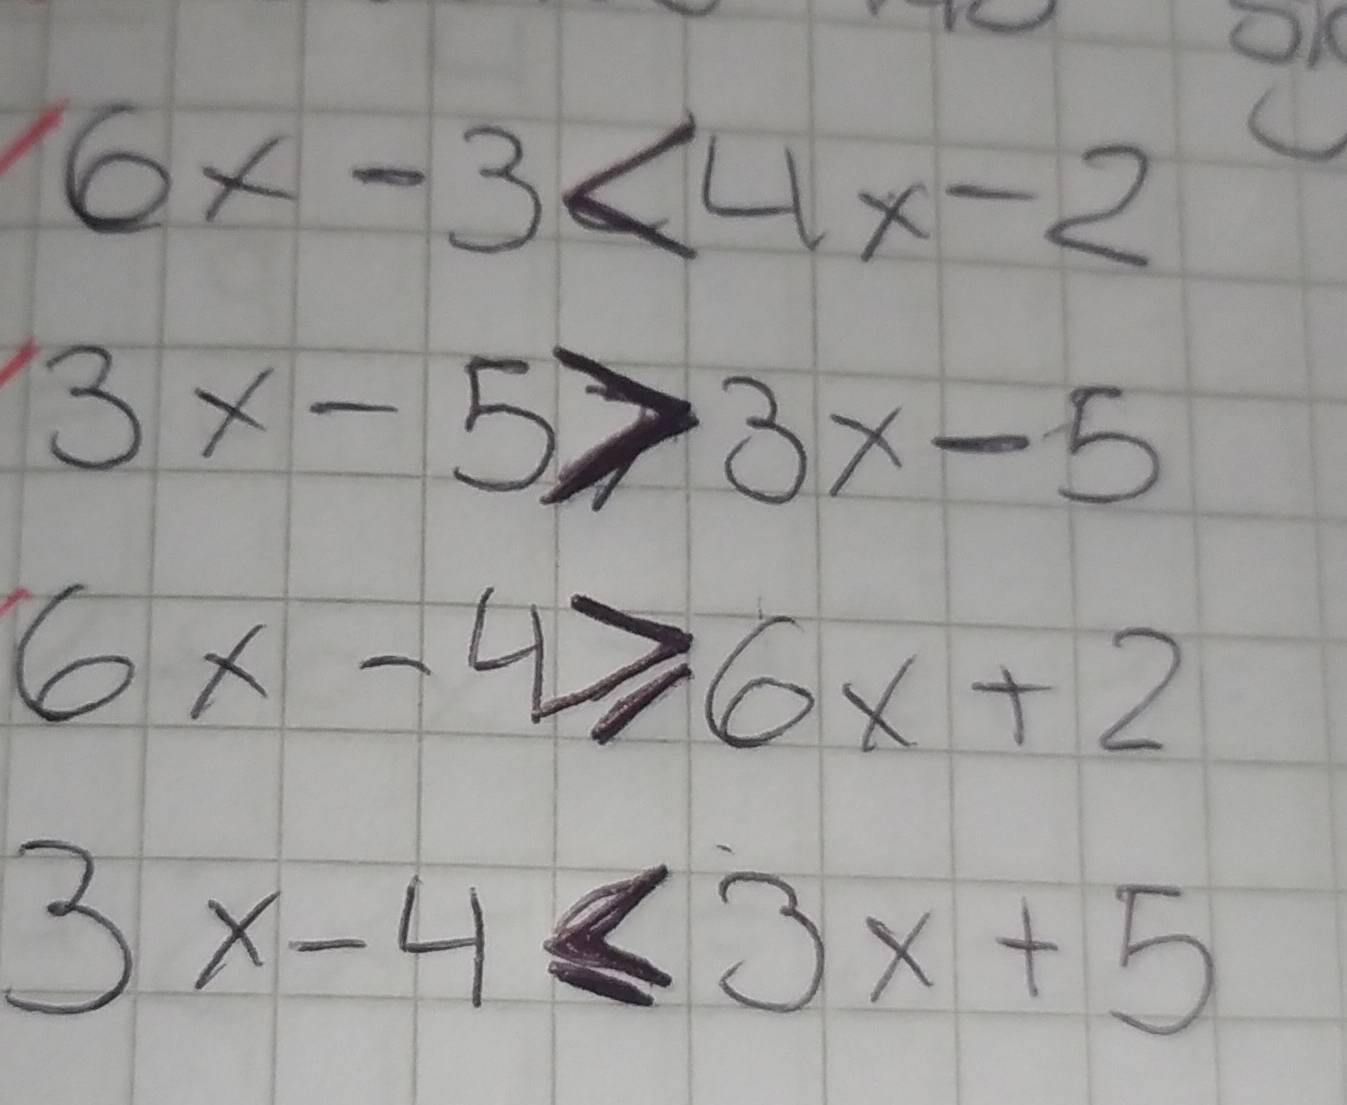 6x - 3 < 4x - 2
3x - 5 > 3x - 5
6x - 4 ⩾ 6x + 2
3x - 4 ⩽ 3x + 5